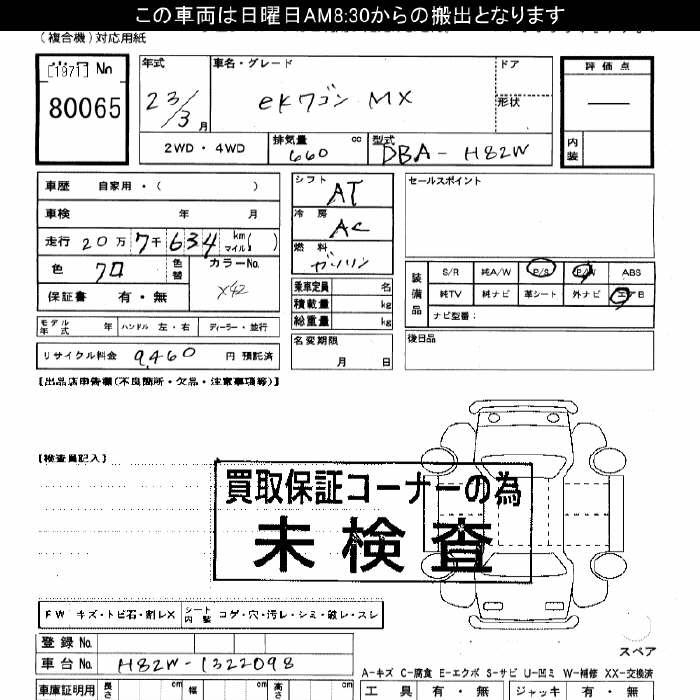 この車両は日曜日AM8:30からの搬出となります
(複合機)対応用紙
[1971] No
80065
年式
23/3 月
車名・グレード
eKワゴン MX
ドア
形状
評価点
—
内装
2WD・4WD
排気量 660 cc
型式 DBA-H82W
車歴 自家用・( )
車検 年 月
走行 20万7千634 km マイル( )
色 クロ
色替
カラーNo. X42
保証書 有・無
モデル年式 年 ハンドル 左・右 ディーラー・並行
リサイクル料金 9,460 円 預託済
シフト AT
冷房 AC
燃料 ガソリン
乗車定員 名
積載量 kg
総重量 kg
名変期限
月 日
セールスポイント
装備品
S/R 純A/W P/S P/W ABS
純TV 純ナビ 革シート 外ナビ エアB
ナビ型番:
後日品
【出品店申告欄(不良箇所・欠品・注意事項等)】
【検査員記入】
買取保証コーナーの為
未検査
FW キズ・トビ石・割レX
シート内装 コゲ・穴・汚レ・シミ・破レ・スレ
登録No.
車台No. H82W-1322098
車庫証明用 長さ cm 幅 cm 高さ cm
スペア
A-キズ C-腐食 E-エクボ S-サビ U-凹ミ W-補修 XX-交換済
工具 有・無 ジャッキ 有・無